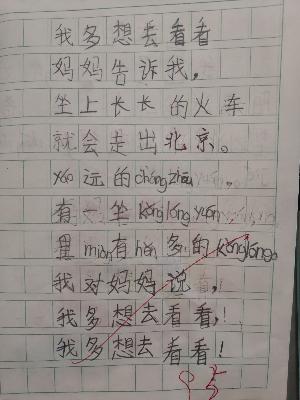 我多想去看看
妈妈告诉我,
坐上长长的火车
就会走出北京。
yáo远的chángzhōu,
有一坐kǒnglóngyuán,
里miàn有hěn多的kǒnglóng。
我对妈妈说,
我多想去看看,!
我多想去看看!
95